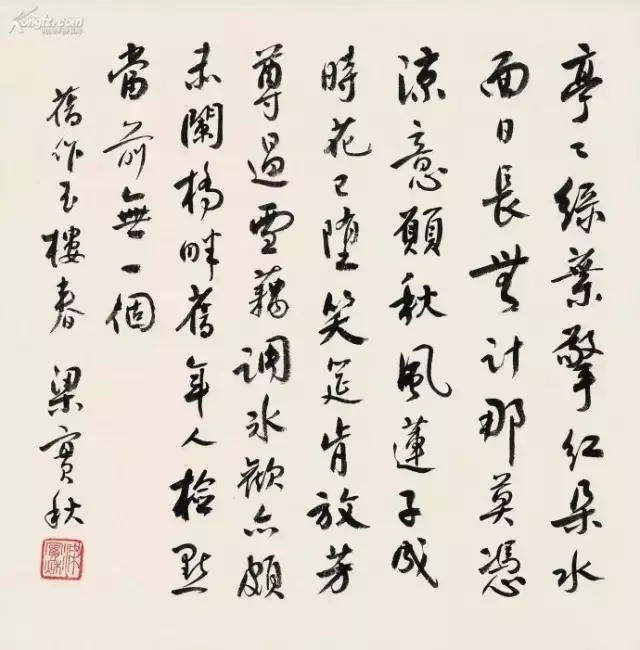 亭〻綠葉擎紅朵水
面日長無計那莫憑
涼意願秋風蓮子成
時花已墮笑筵肯放芳
尊過雪藕調冰歡亦頗
赤闌橋畔舊年人檢點
當前無一個
舊作玉樓春 梁實秋
梁實秋
Kongfz.com